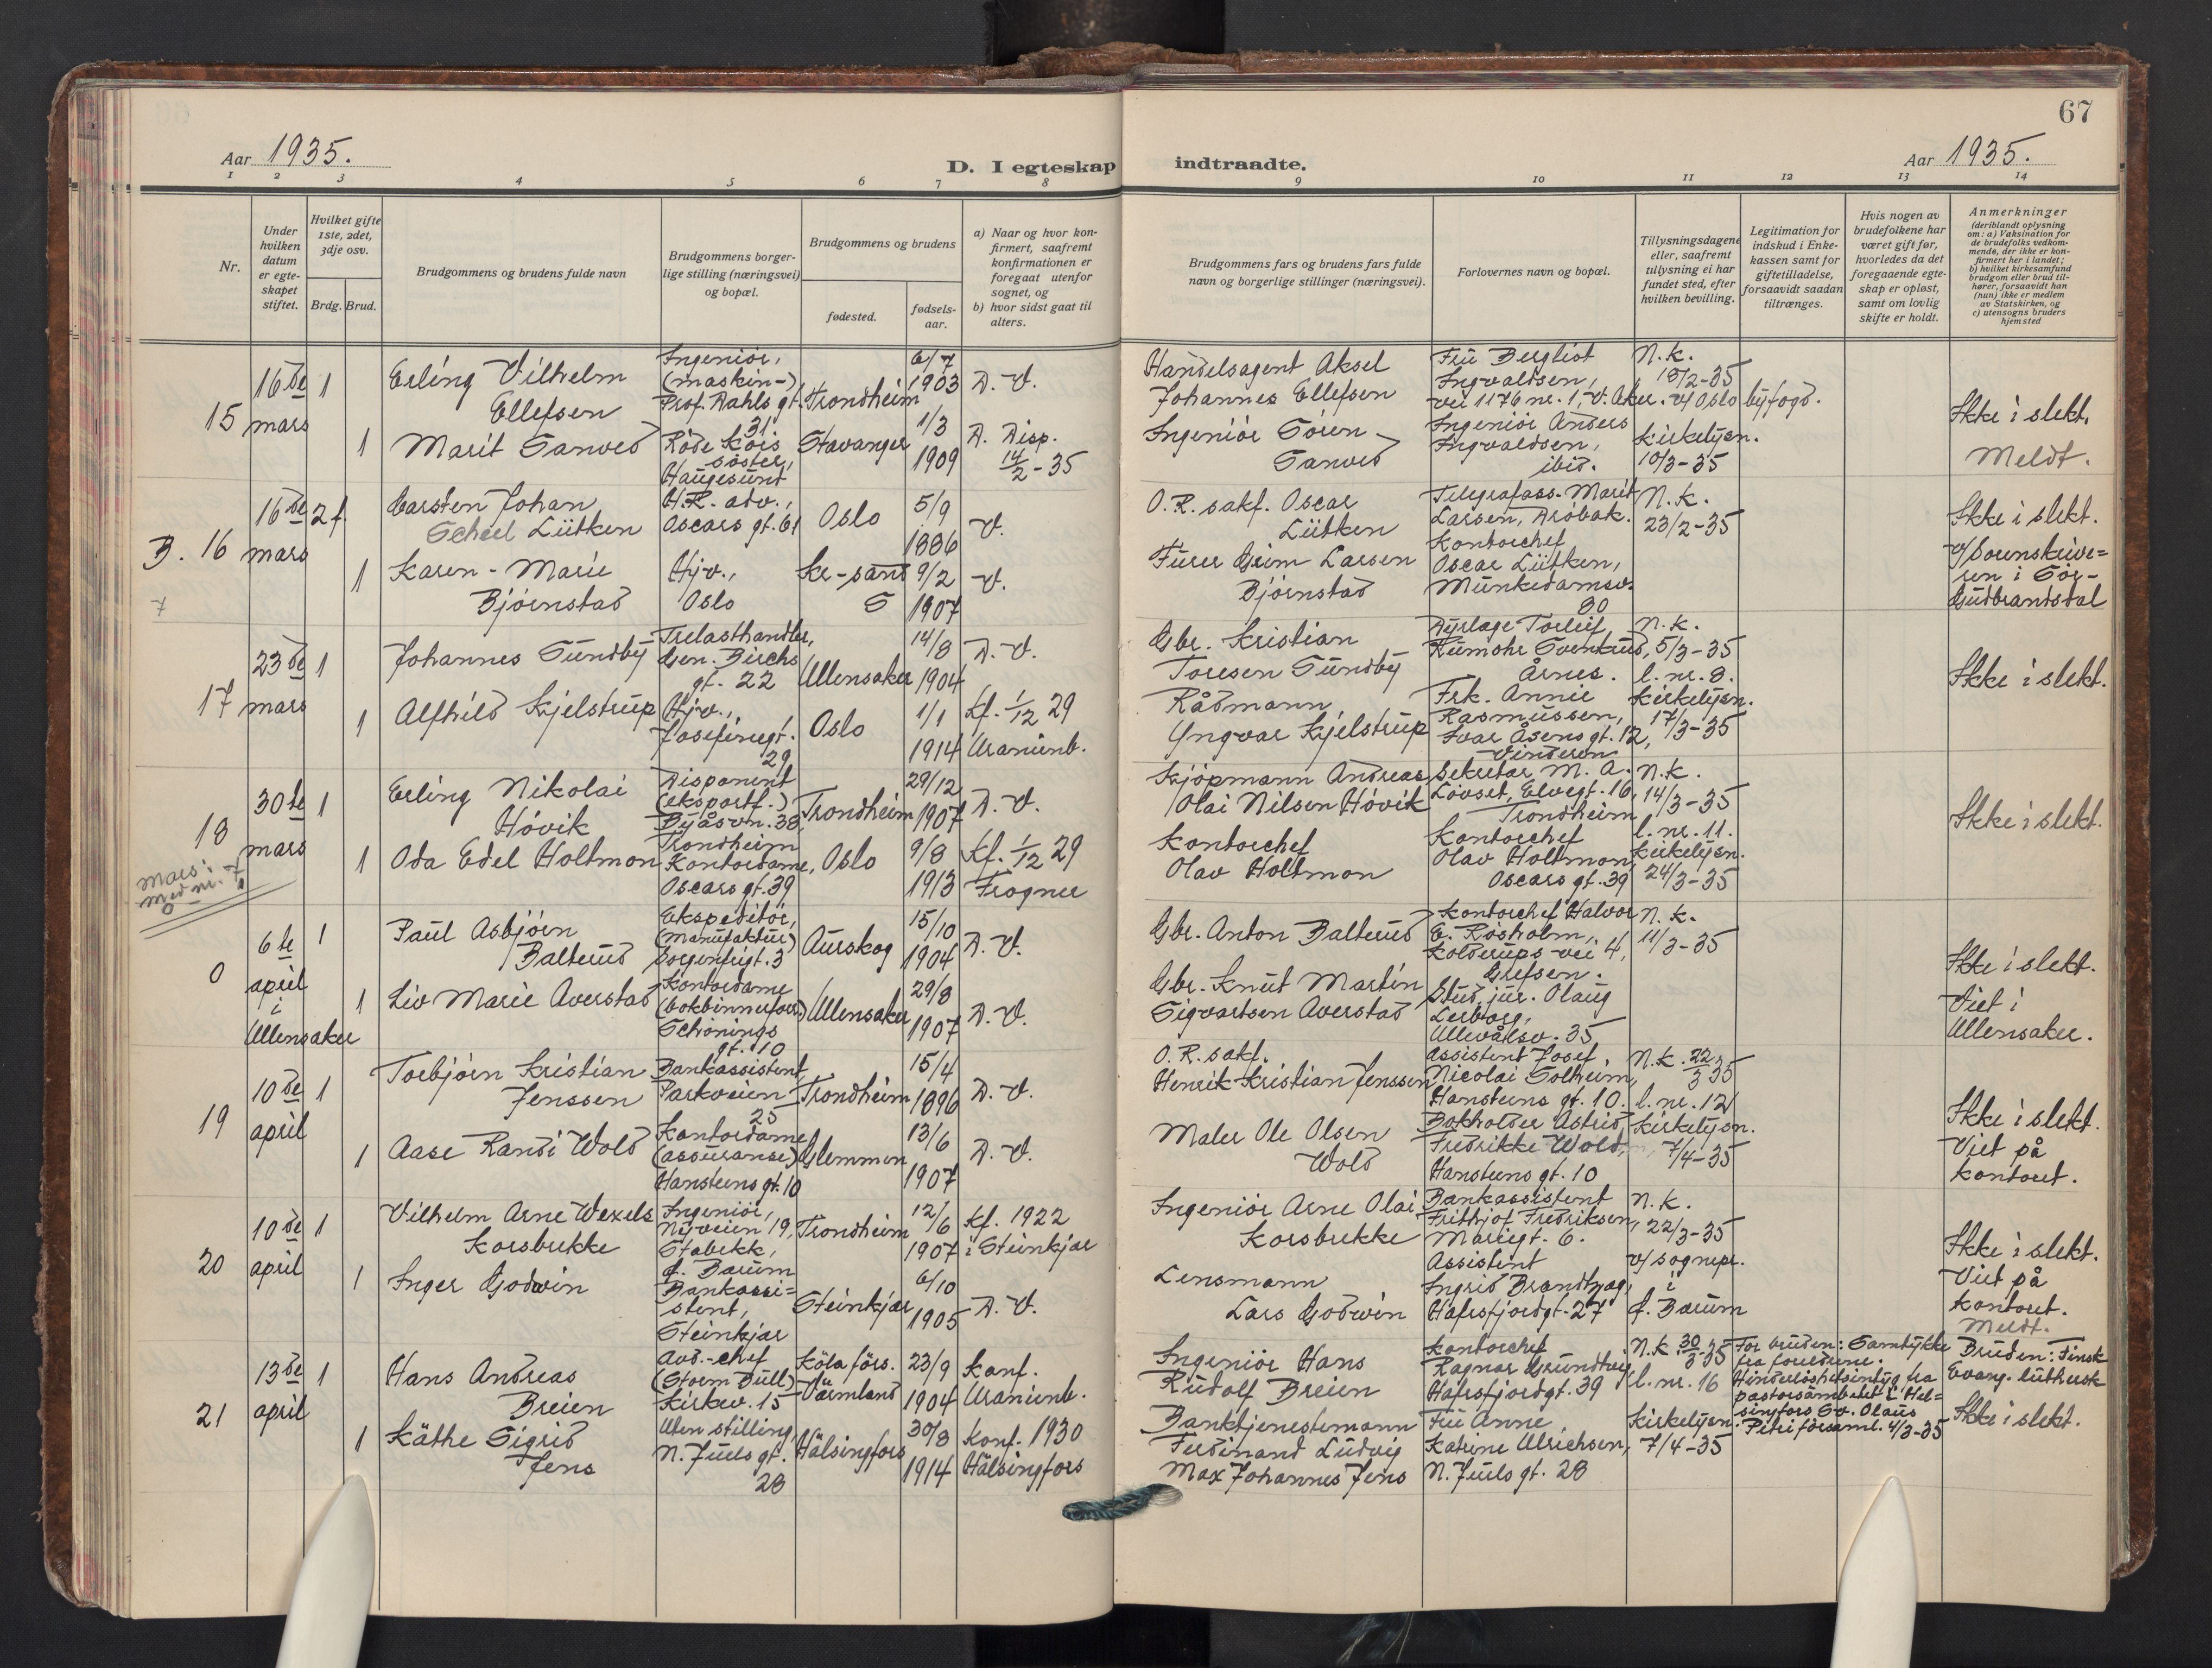 67
Aar 1935.
D. I egteskap indtraadte.
Aar 1935.
1 2 3 4 5 6 7 8 9 10 11 12 13 14
Nr.
Under hvilken datum er egteskapet stiftet.
Hvilket gifte 1ste, 2det, 3dje osv.
Brdg. Brud.
Brudgommens og brudens fulde navn
Brudgommens borgerlige stilling (næringsvei) og bopæl.
Brudgommens og brudens
fødested.
fødselsaar.
a) Naar og hvor konfirmert, saafremt konfirmationen er foregaat utenfor sognet, og
b) hvor sidst gaat til alters.
Brudgommens fars og brudens fars fulde navn og borgerlige stillinger (næringsvei).
Forlovernes navn og bopæl.
Tillysningsdagene eller, saafremt tillysning ei har fundet sted, efter hvilken bevilling.
Legitimation for indskud i Enkekassen samt for giftetilladelse, forsaavidt saadan tiltrænges.
Hvis nogen av brudefolkene har været gift før, hvorledes da det foregaaende egteskap er opløst, samt om lovlig skifte er holdt.
Anmerkninger
(deriblandt oplysning om: a) Vaksination for de brudefolks vedkommende, der ikke er konfirmert her i landet; b) hvilket kirkesamfund brudgom eller brud tilhører, forsaavidt han (hun) ikke er medlem av Statskirken, og c) utensogns bruders hjemsted
15
16de mars
1
Erling Vilhelm
Ellefsen
Ingeniør,
(maskin-)
Prof. Dahls gt.
31
Trondheim
6/7
1903
D. V.
Handelsagent Aksel
Johannes Ellefsen
Fru Bergliot
Ingvaldsen,
vei 1176 nr. 1, V. Aker.
N. k.
18/2-35
v/ Oslo byfogd.
Ikke i slekt.
1
Marit Sanved
Røde Kors
søster,
Haugesund
Stavanger
1/3
1909
D. Disp.
14/2-35
Ingeniør Sören
Sanved
Ingeniør Anders
Ingvaldsen,
ibid.
Kirkelysn.
10/3-35
Meldt.
B. 16
7
16de mars
2 f.
Carsten Johan
Scheel Lütken
H.R. adv.,
Oscars gt. 61
Oslo
5/9
1886
V.
O. R. sakf. Oscar
Lütken
Telegrafass. Marit
Larsen, Drøbak.
N. k.
23/2-35
Ikke i slekt.
1
Karen-Marie
Bjørnstad
Hjv.,
Oslo
Kr-sand
S
9/2
1907
V.
Furer Grim Larsen
Bjørnstad
Kontorchef
Oscar Lütken,
Munkedamsv.
80
v/ Sorenskrive=
ren i Sör-
Gudbrandsdal
17
23de mars
1
Johannes Sundby
Trelasthandler,
Gen. Birchs
gt. 22
Ullensaker
14/8
1904
D. V.
Gbr. Kristian
Toresen Sundby
Dyrlæge Torleif
Rumohr Svenkrud,
Årnes.
N. k.
5/3-35
l. nr. 8.
Ikke i slekt.
1
Alfhild Kjelstrup
Hjv.,
Josefinegt.
29
Oslo
1/1
1914
Kf. 1/12 29
Uranienb.
Rådmann
Yngvar Kjelstrup
Frk. Annie
Rasmussen,
Ivar Åsens gt. 12,
Vinderen
Kirkelysn.
17/3-35
18
mars:
med nr. 7
30te mars
1
Erling Nikolai
Hövik
Disponent
(eksportf.)
Byåsvn. 38,
Trondheim
Trondheim
29/12
1907
D. V.
Kjöpmann Andreas
Olai Nilsen Hövik
Sekretær M. A.
Lövset, Elvegt. 16,
Trondheim
N. k.
14/3-35
l. nr. 11.
Ikke i slekt.
1
Oda Edel Holtmon
Kontordame,
Oscars gt. 39
Oslo
9/8
1913
Kf. 1/12 29
Frogner
Kontorchef
Olav Holtmon
Kontorchef
Olav Holtmon,
Oscars gt. 39
Kirkelysn.
24/3-35
0
6te april
i
Ullensaker
1
Paul Asbjörn
Balterud
Ekspeditör,
(manufaktur)
Sorgenfrigt. 3
Aurskog
15/10
1904
D. V.
Gbr. Anton Balterud
Kontorchef Halvor
E. Rosholm,
Kolderups vei 4,
Grefsen.
N. k.
11/3-35
Ikke i slekt.
1
Liv Marie Averstad
Kontordame
(bokbinnerforr.)
Schönings
gt. 10
Ullensaker
29/8
1907
D. V.
Gbr. Knut Martin
Sigvartsen Averstad
Stud. jur. Olaug
Ullevålsv. 35
Viet i
Ullensaker.
19
10de april
1
Torbjörn Kristian
Jenssen
Bankassistent,
Parkveien
25
Trondheim
15/4
1896
D. V.
O. R. sakf.
Henrik Kristian Jenssen
Assistent Josef
Nicolai Solheim,
Hansteens gt. 10.
N. k. 22/3 35
l. nr. 12
Ikke i slekt.
1
Aase Randi Wold
Kontordame
(assuranse)
Hansteens gt. 10
Glemmen
13/6
1907
D. V.
Maler Ole Olsen
Wold
Bokholder Astrid
Fredrikke Wold,
Hansteens gt. 10
Kirkelysn.
7/4-35
Viet på
kontoret.
20
10de april
1
Vilhelm Arne Wexels
Korsbrekke
Ingeniör,
Nyveien 19,
Stabekk,
Ø. Bærum
Trondheim
12/6
1907
Kf. 1922
i Steinkjær
Ingeniör Arne Olai
Korsbrekke
Bankassistent
Frithjof Fredriksen,
Mariegt. 6.
N. k.
22/3-35
v/ sognepr.
i
Ø. Bærum
Ikke i slekt.
1
Inger Godwin
Bankassi=
stent,
Steinkjær
Steinkjær
6/10
1905
D. V.
Lensmann
Lars Godwin
Assistent
Ingrid Brandtzæg,
Hafrsfjordgt. 27
Viet på
kontoret.
Meldt.
21
13de april
1
Hans Andreas
Breien
Avd.-chef
(Storm Bull)
Kirkev. 15
Köla förs.
Värmland
23/9
1904
Konf.
Uranienb.
Ingeniör Hans
Rudolf Breien
Kontorchef
Ragnar Grundtvig,
Hafrsfjordgt. 39
N. k. 30/3-35
l. nr. 16
For bruden: Samtykke
fra foreldrene.
Hinderlöshetsintyg fra
pastorsämbetet i Hel=
singfors Sv. Olaus
Petri församl. 4/3-35
Bruden: Finsk
Evang. luthersk
1
Käthe Sigrid
Jens
Uten stilling,
N. Juels gt.
28
Hälsingfors
30/8
1914
Konf. 1930
Hälsingfors
Banktjenestemann
Ferdinand Ludvig
Max Johannes Jens
Fru Anne
Katrine Ulrichsen,
N. Juels gt. 28
Kirkelysn.
7/4-35
Ikke i slekt.